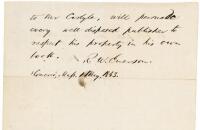 to Mr Carlyle, will persuade
every well disposed publisher to
respect his property in his own
book.
R. W. Emerson.
Concord, Mass. 1 May, 1843.